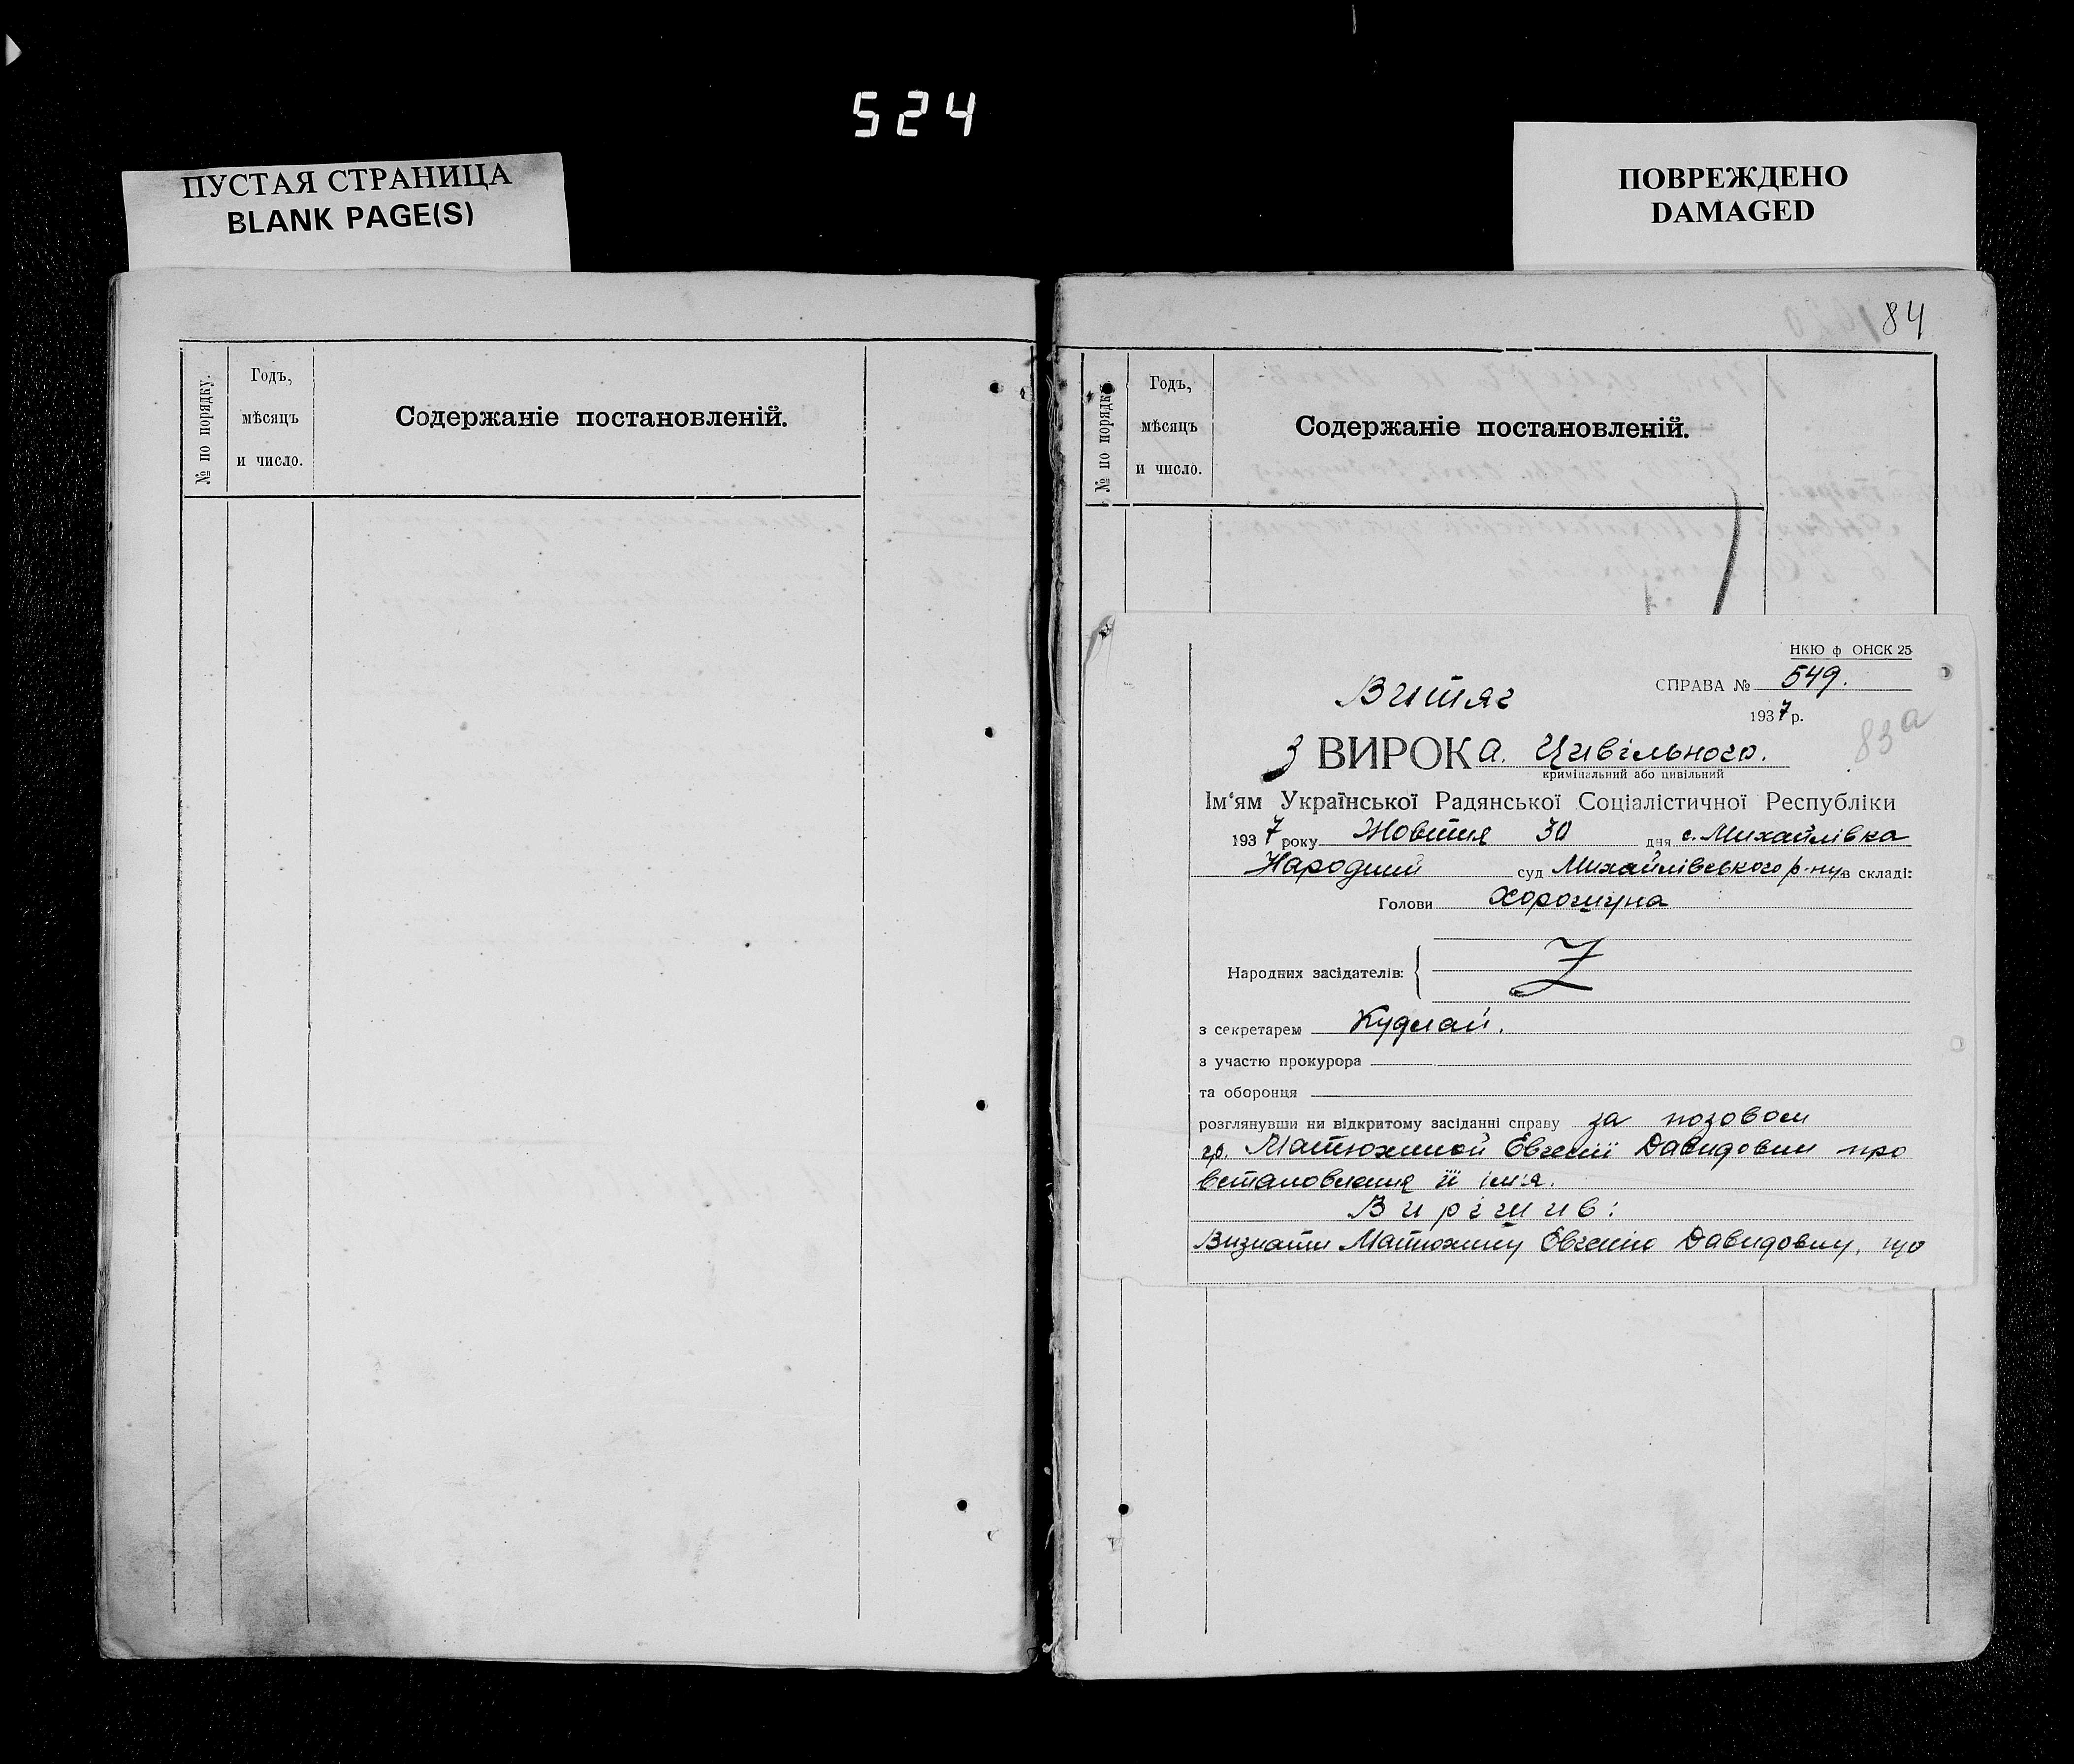 524
ПУСТАЯ СТРАНИЦА
BLANK PAGE(S)
ПОВРЕЖДЕНО
DAMAGED
№ по порядку.
Годъ,
мѣсяцъ
и число.
Содержаніе постановленій.
84
№ по порядку
Годъ,
мѣсяцъ
и число.
Содержаніе постановленій.
НКЮ ф ОНСК 25
СПРАВА № 549.
1937 р.
83а
Витяг
З ВИРОКа. Цивільного.
кримінальний або цивільний
Ім‘ям Української Радянської Соціалістичної Республіки
1937 року Жовтня 30 дня с. Михайлівка
Народний суд Михайлівського р-ну в складі:
Голови Хорошуна
Народних засідателів:
з секретарем Кудлай.
з участю прокурора
та оборонця
розглянувши ни відкритому засіданні справу за позовом
гр. Матюхиной Євгенії Давидовни про
встановлення її ім'я.
Вирішив:
Визнати Матюхину Євгенію Давидовну, що